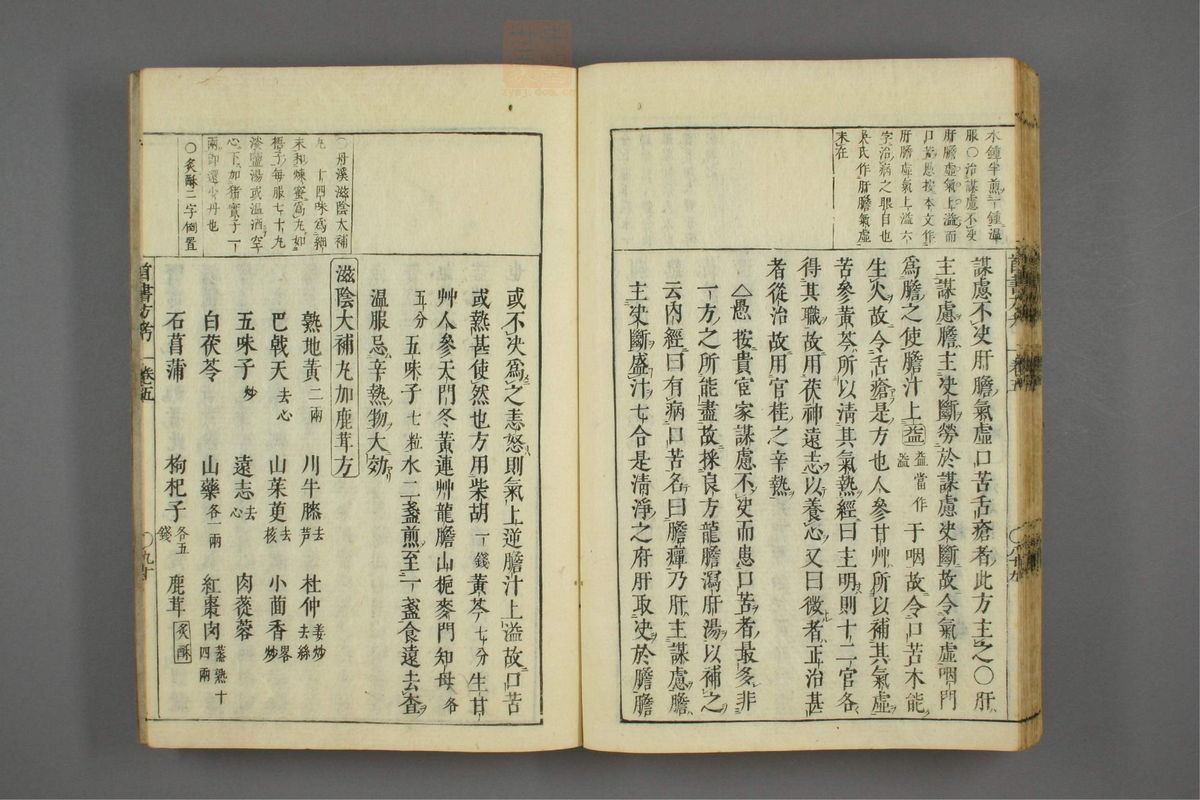 水鍾半煎一鍾溫
服○治謀慮不决
肝膽虛氣上溢而
口苦愚按本文作
肝膽虛氣上溢六
字治病之眼目也
吳氏作肝膽氣虛
未在
謀慮不决肝膽氣虛口苦舌瘡者此方主之○肝
主謀慮膽主决斷勞於謀慮决斷故令氣虛咽門
爲膽之使膽汁上益益當作溢于咽故令口苦木能
生火故令舌瘡是方也人參甘艸所以補其氣虛
苦參黃芩所以清其氣熱經曰主明則十二官各
得其職故用茯神遠志以養心又曰微者正治甚
者從治故用官桂之辛熱
△愚按貴宦家謀慮不决而患口苦者最多非
一方之所能盡故採良方龍膽瀉肝湯以補之
云內經曰有病口苦名曰膽癉乃肝主謀慮膽
主决斷盛汁七合是清淨之府肝取决於膽膽
○丹溪滋陰大補
丸 十四味爲細
末和煉蜜爲丸如
梧子每服七十丸
淡鹽湯或溫酒空
心下加猪實子一
兩即還少丹也
○炙酥二字倒置
或不决爲之恚怒則氣上逆膽汁上溢故口苦
或熱甚使然也方用柴胡一錢黃芩七分生甘
艸人參天門冬黃連艸龍膽山梔麥門知母各
五分五味子七粒水二盞煎至一盞食遠去查
溫服忌辛熱物大効
滋陰大補丸加鹿茸方
熟地黃二兩 川牛膝去芦 杜仲姜炒去絲
巴戟天去心 山茱萸去核 小茴香畧炒
五味子炒 遠志去心 肉蓯蓉
白茯苓 山藥各一兩 紅棗肉蒸熟十四兩
石菖蒲 枸杞子各五錢 鹿茸炙酥